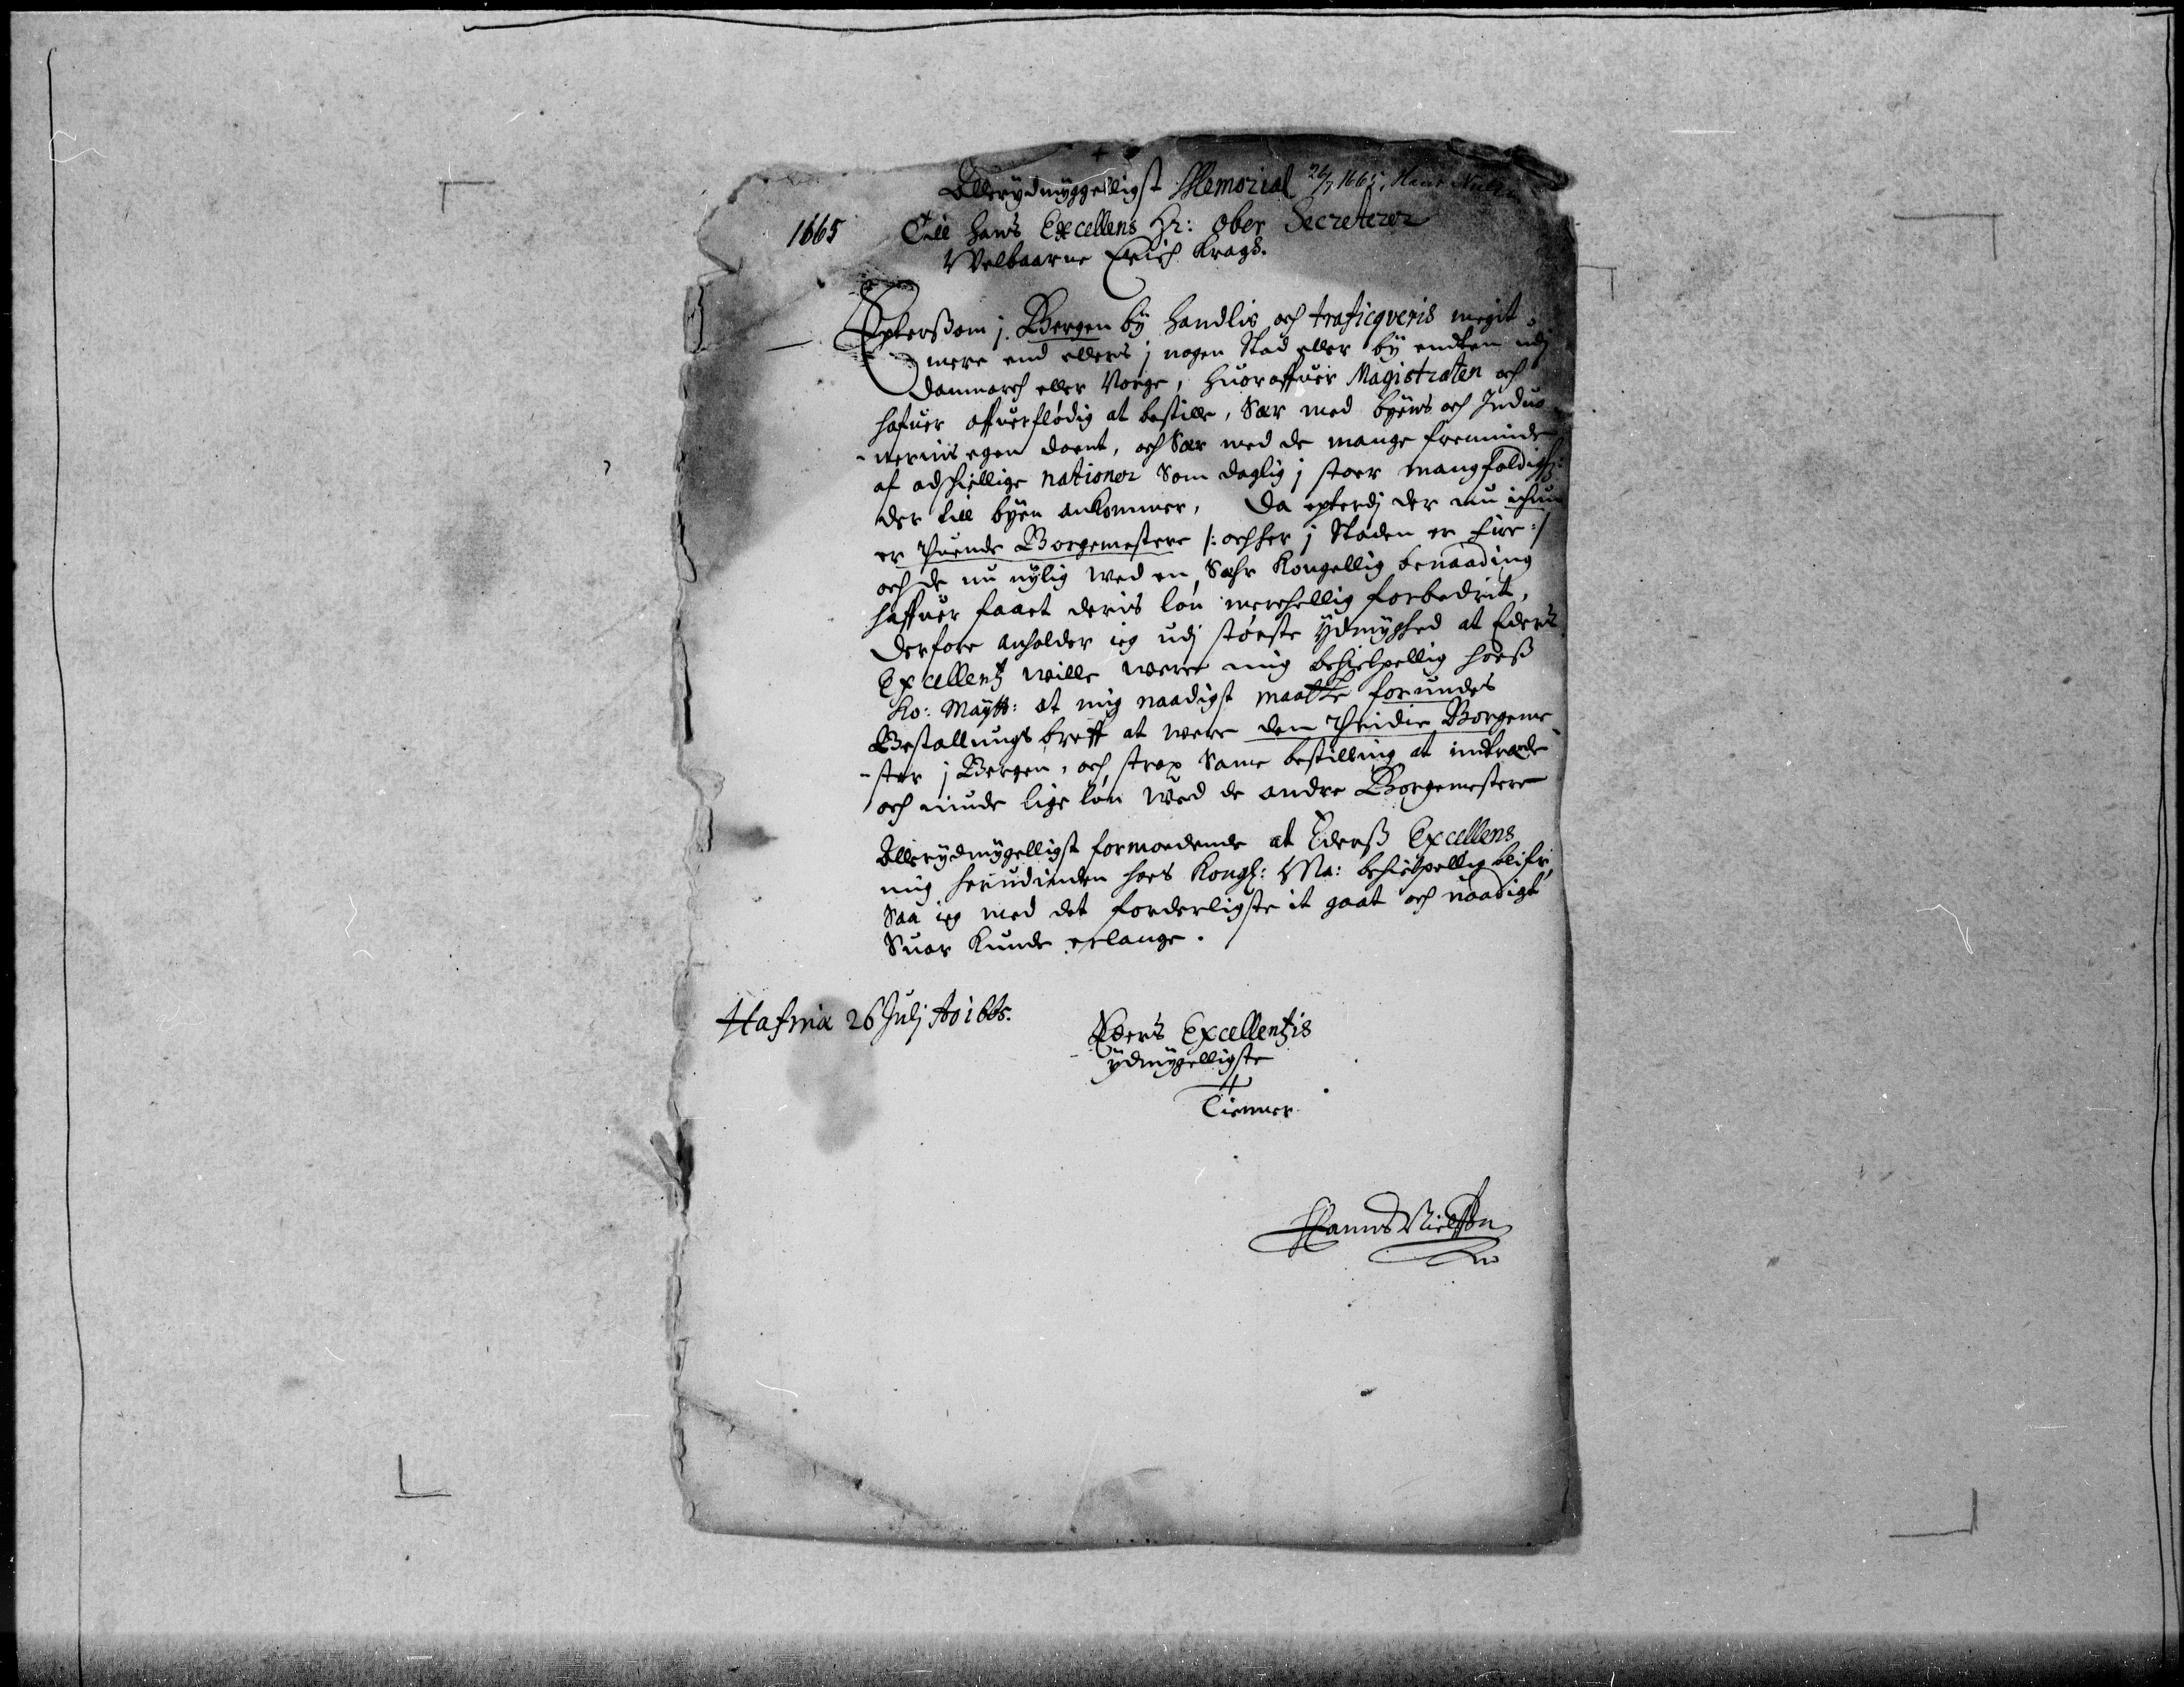 Allerydmyggeligst Memorial 26/7 1665, Hans Nielsen
1665
Till hans Excellens Hr: ober Secreterer
Welbaarne Erich Krags.
Epterßom j Bergen bÿ handlis och traficqveris megit
mere end ellers j nogen Stad eller bÿ endten udj
Danmarch eller Norge, huoraffuer Magistraten och
hafuer offuerflødig at bestille, Saa med byens och Induo-
-nernis egen doent, och Saa med de mange fremmede
af adschellige nationer Som daglig j stoer mangfoldigh:
der till byen ankommer, Da epterdj der nu ichun
er Thuende Borgemestere /: och her j Staden er fire :/
och de nu nÿlig wed en Sæhr Kongellig benaading
haffuer faaet deris løn merchellig forbedrit,
Derfore anholder ieg udj største Ydmyghed at Eders
Excellentz wille were mig behielpellig hoeß
Ko: Maÿtt: at mig naadigst maatte forundes
Bestallungs breff at were den Thridie Borgeme
-ster j Bergen, och strax Same bestilling at indtræde
och niude lige løn wed de andre Borgemestere
Allerydmygelligst formoedende at Ederß Excellens
mig herudinden hoes Kongl: Ma: behielpellig blifr,
Saa ieg med det forderligste it gaat och naadigt
Suar kunde erlange.
Hafniæ 26 Julj Ao 1665.
Eders Excellentzis
ydmygelligste
Tienner
Hanns Nielßøn